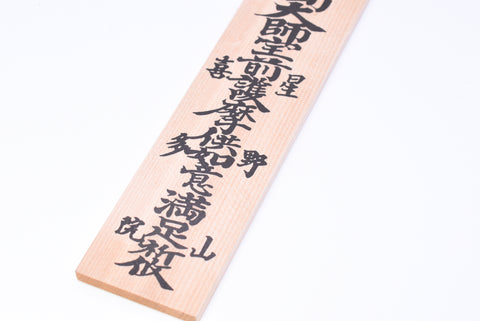 大師宝前護摩供如意満足祈攸
星野山
喜多院